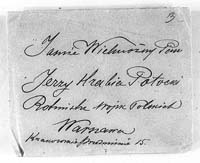 Jaśnie Wielmożny Pan
Jerzy Hrabia Potocki
Rotmistrz Wojsk Polskich
Warszawa
Krakowskie Przedmieście 15.